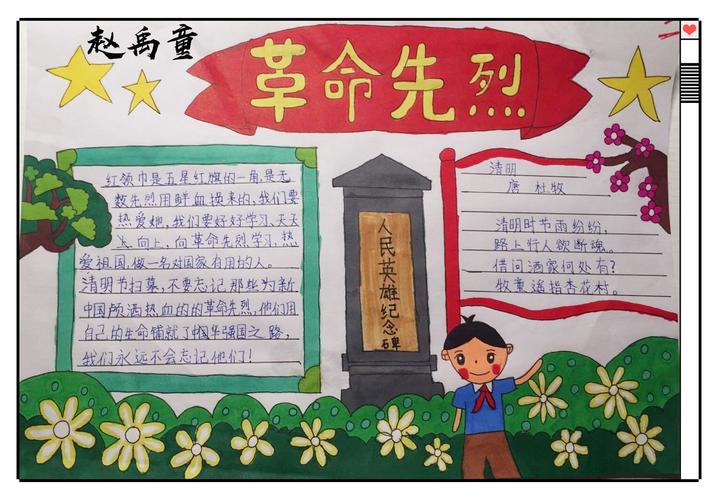 赵禹童
革命先烈
红领巾是五星红旗的一角,是无
数先烈用鲜血换来的,我们要
热爱她,我们要好好学习、天天
向上,向革命先烈学习,热
爱祖国,做一名对国家有用的人。
清明节扫墓,不要忘记那些为新
中国抛洒热血的的革命先烈,他们用
自己的生命铺就了中国华强国之路,
我们永远不会忘记他们!
人民英雄纪念碑
清明
唐 杜牧
清明时节雨纷纷,
路上行人欲断魂。
借问酒家何处有?
牧童遥指杏花村。